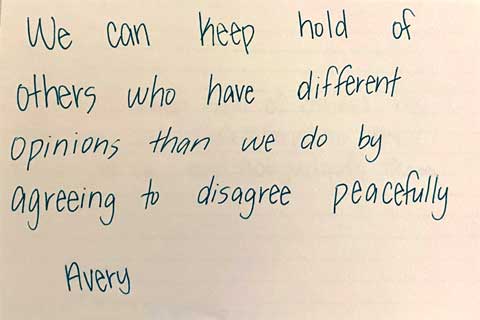 We can keep hold of
others who have different
opinions than we do by
agreeing to disagree peacefully
Avery